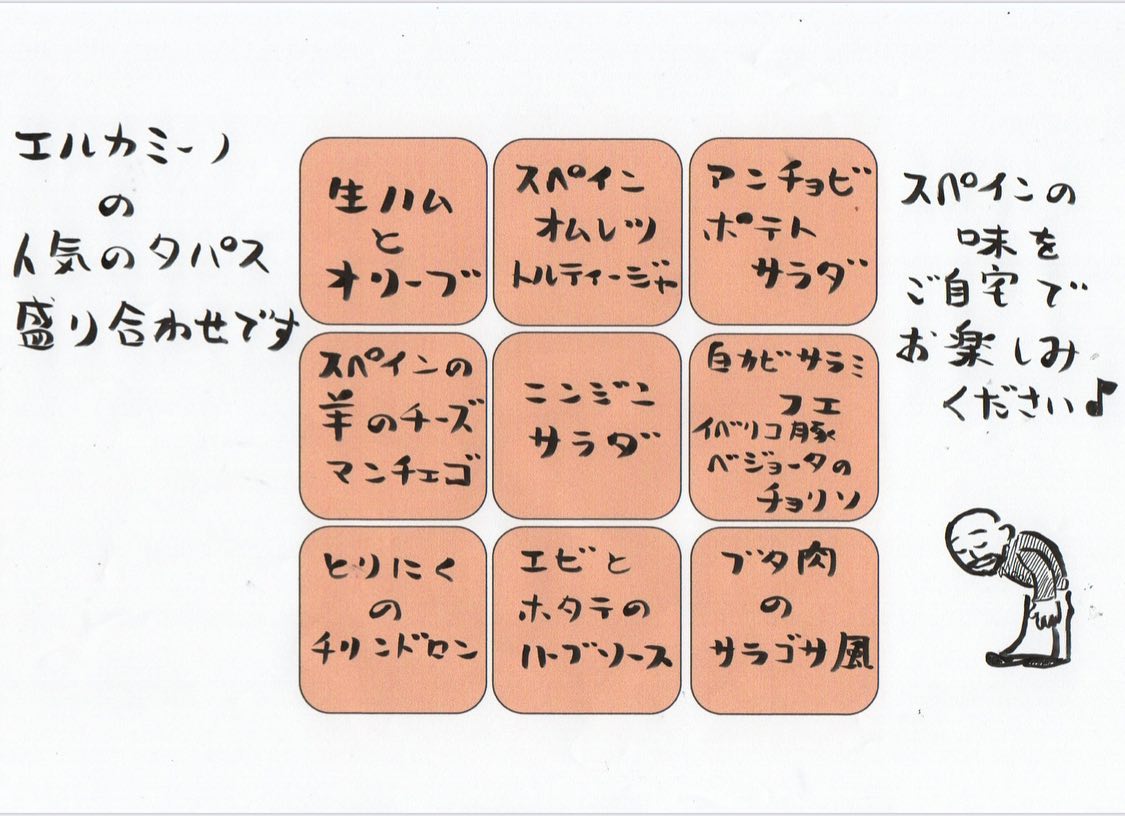 エルカミーノ
の
人気のタパス
盛り合わせです
生ハム
と
オリーブ
スペイン
オムレツ
トルティージャ
アンチョビ
ポテト
サラダ
スペインの
羊のチーズ
マンチェゴ
ニンジン
サラダ
白カビサラミ
フエ
イベリコ豚
ベジョータの
チョリソ
とりにく
の
チリンドロン
エビと
ホタテの
ハーブソース
ブタ肉
の
サラゴサ風
スペインの
味を
ご自宅で
お楽しみ
ください♪